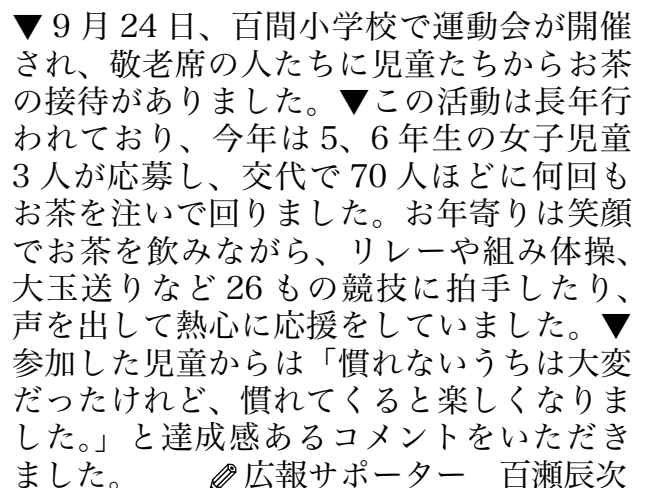 ▼9月24日、百間小学校で運動会が開催
され、敬老席の人たちに児童たちからお茶
の接待がありました。▼この活動は長年行
われており、今年は5、6年生の女子児童
3人が応募し、交代で70人ほどに何回も
お茶を注いで回りました。お年寄りは笑顔
でお茶を飲みながら、リレーや組み体操、
大玉送りなど26もの競技に拍手したり、
声を出して熱心に応援をしていました。▼
参加した児童からは「慣れないうちは大変
だったけれど、慣れてくると楽しくなりま
した。」と達成感あるコメントをいただき
ました。 広報サポーター 百瀬辰次